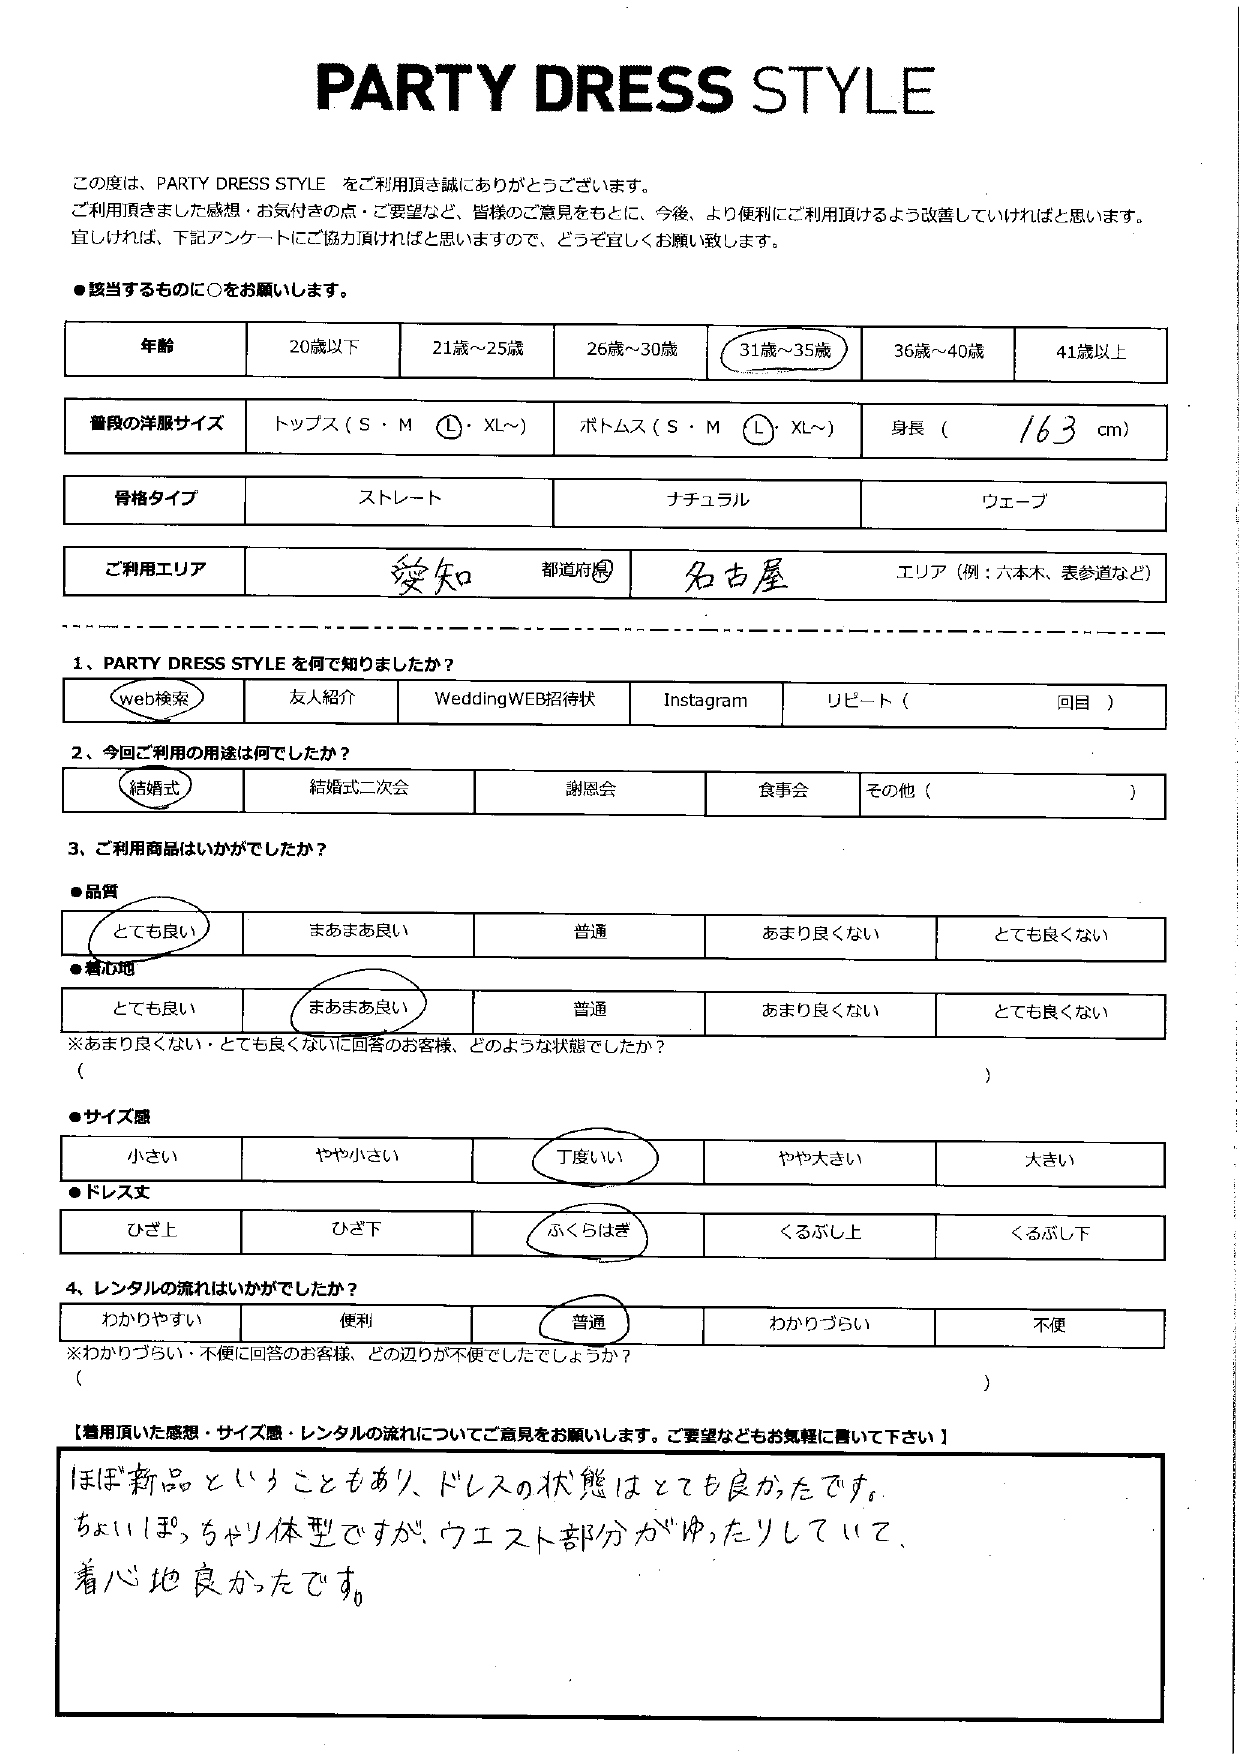 PARTY DRESS STYLE
この度は、PARTY DRESS STYLE をご利用頂き誠にありがとうございます。
ご利用頂きました感想・お気付きの点・ご要望など、皆様のご意見をもとに、今後、より便利にご利用頂けるよう改善していければと思います。
宜しければ、下記アンケートにご協力頂ければと思いますので、どうぞ宜しくお願い致します。
●該当するものに○をお願いします。
年齢 20歳以下 21歳～25歳 26歳～30歳 31歳～35歳 36歳～40歳 41歳以上
普段の洋服サイズ トップス ( S ・ M L ・ XL～) ボトムス ( S ・ M L ・ XL～) 身長 ( 163 cm)
骨格タイプ ストレート ナチュラル ウェーブ
ご利用エリア 愛知 都道府県 名古屋 エリア (例：六本木、表参道など)
1、PARTY DRESS STYLE を何で知りましたか？
web検索 友人紹介 WeddingWEB招待状 Instagram リピート ( 回目 )
2、今回ご利用の用途は何でしたか？
結婚式 結婚式二次会 謝恩会 食事会 その他 ( )
3、ご利用商品はいかがでしたか？
●品質
とても良い まあまあ良い 普通 あまり良くない とても良くない
●着心地
とても良い まあまあ良い 普通 あまり良くない とても良くない
※あまり良くない・とても良くないに回答のお客様、どのような状態でしたか？
( )
●サイズ感
小さい やや小さい 丁度いい やや大きい 大きい
●ドレス丈
ひざ上 ひざ下 ふくらはぎ くるぶし上 くるぶし下
4、レンタルの流れはいかがでしたか？
わかりやすい 便利 普通 わかりづらい 不便
※わかりづらい・不便に回答のお客様、どの辺りが不便でしたでしょうか？
( )
【着用頂いた感想・サイズ感・レンタルの流れについてご意見をお願いします。ご要望などもお気軽に書いて下さい 】
ほぼ新品ということもあり、ドレスの状態はとても良かったです。
ちょいぽっちゃり体型ですが、ウエスト部分がゆったりしていて、
着心地良かったです。